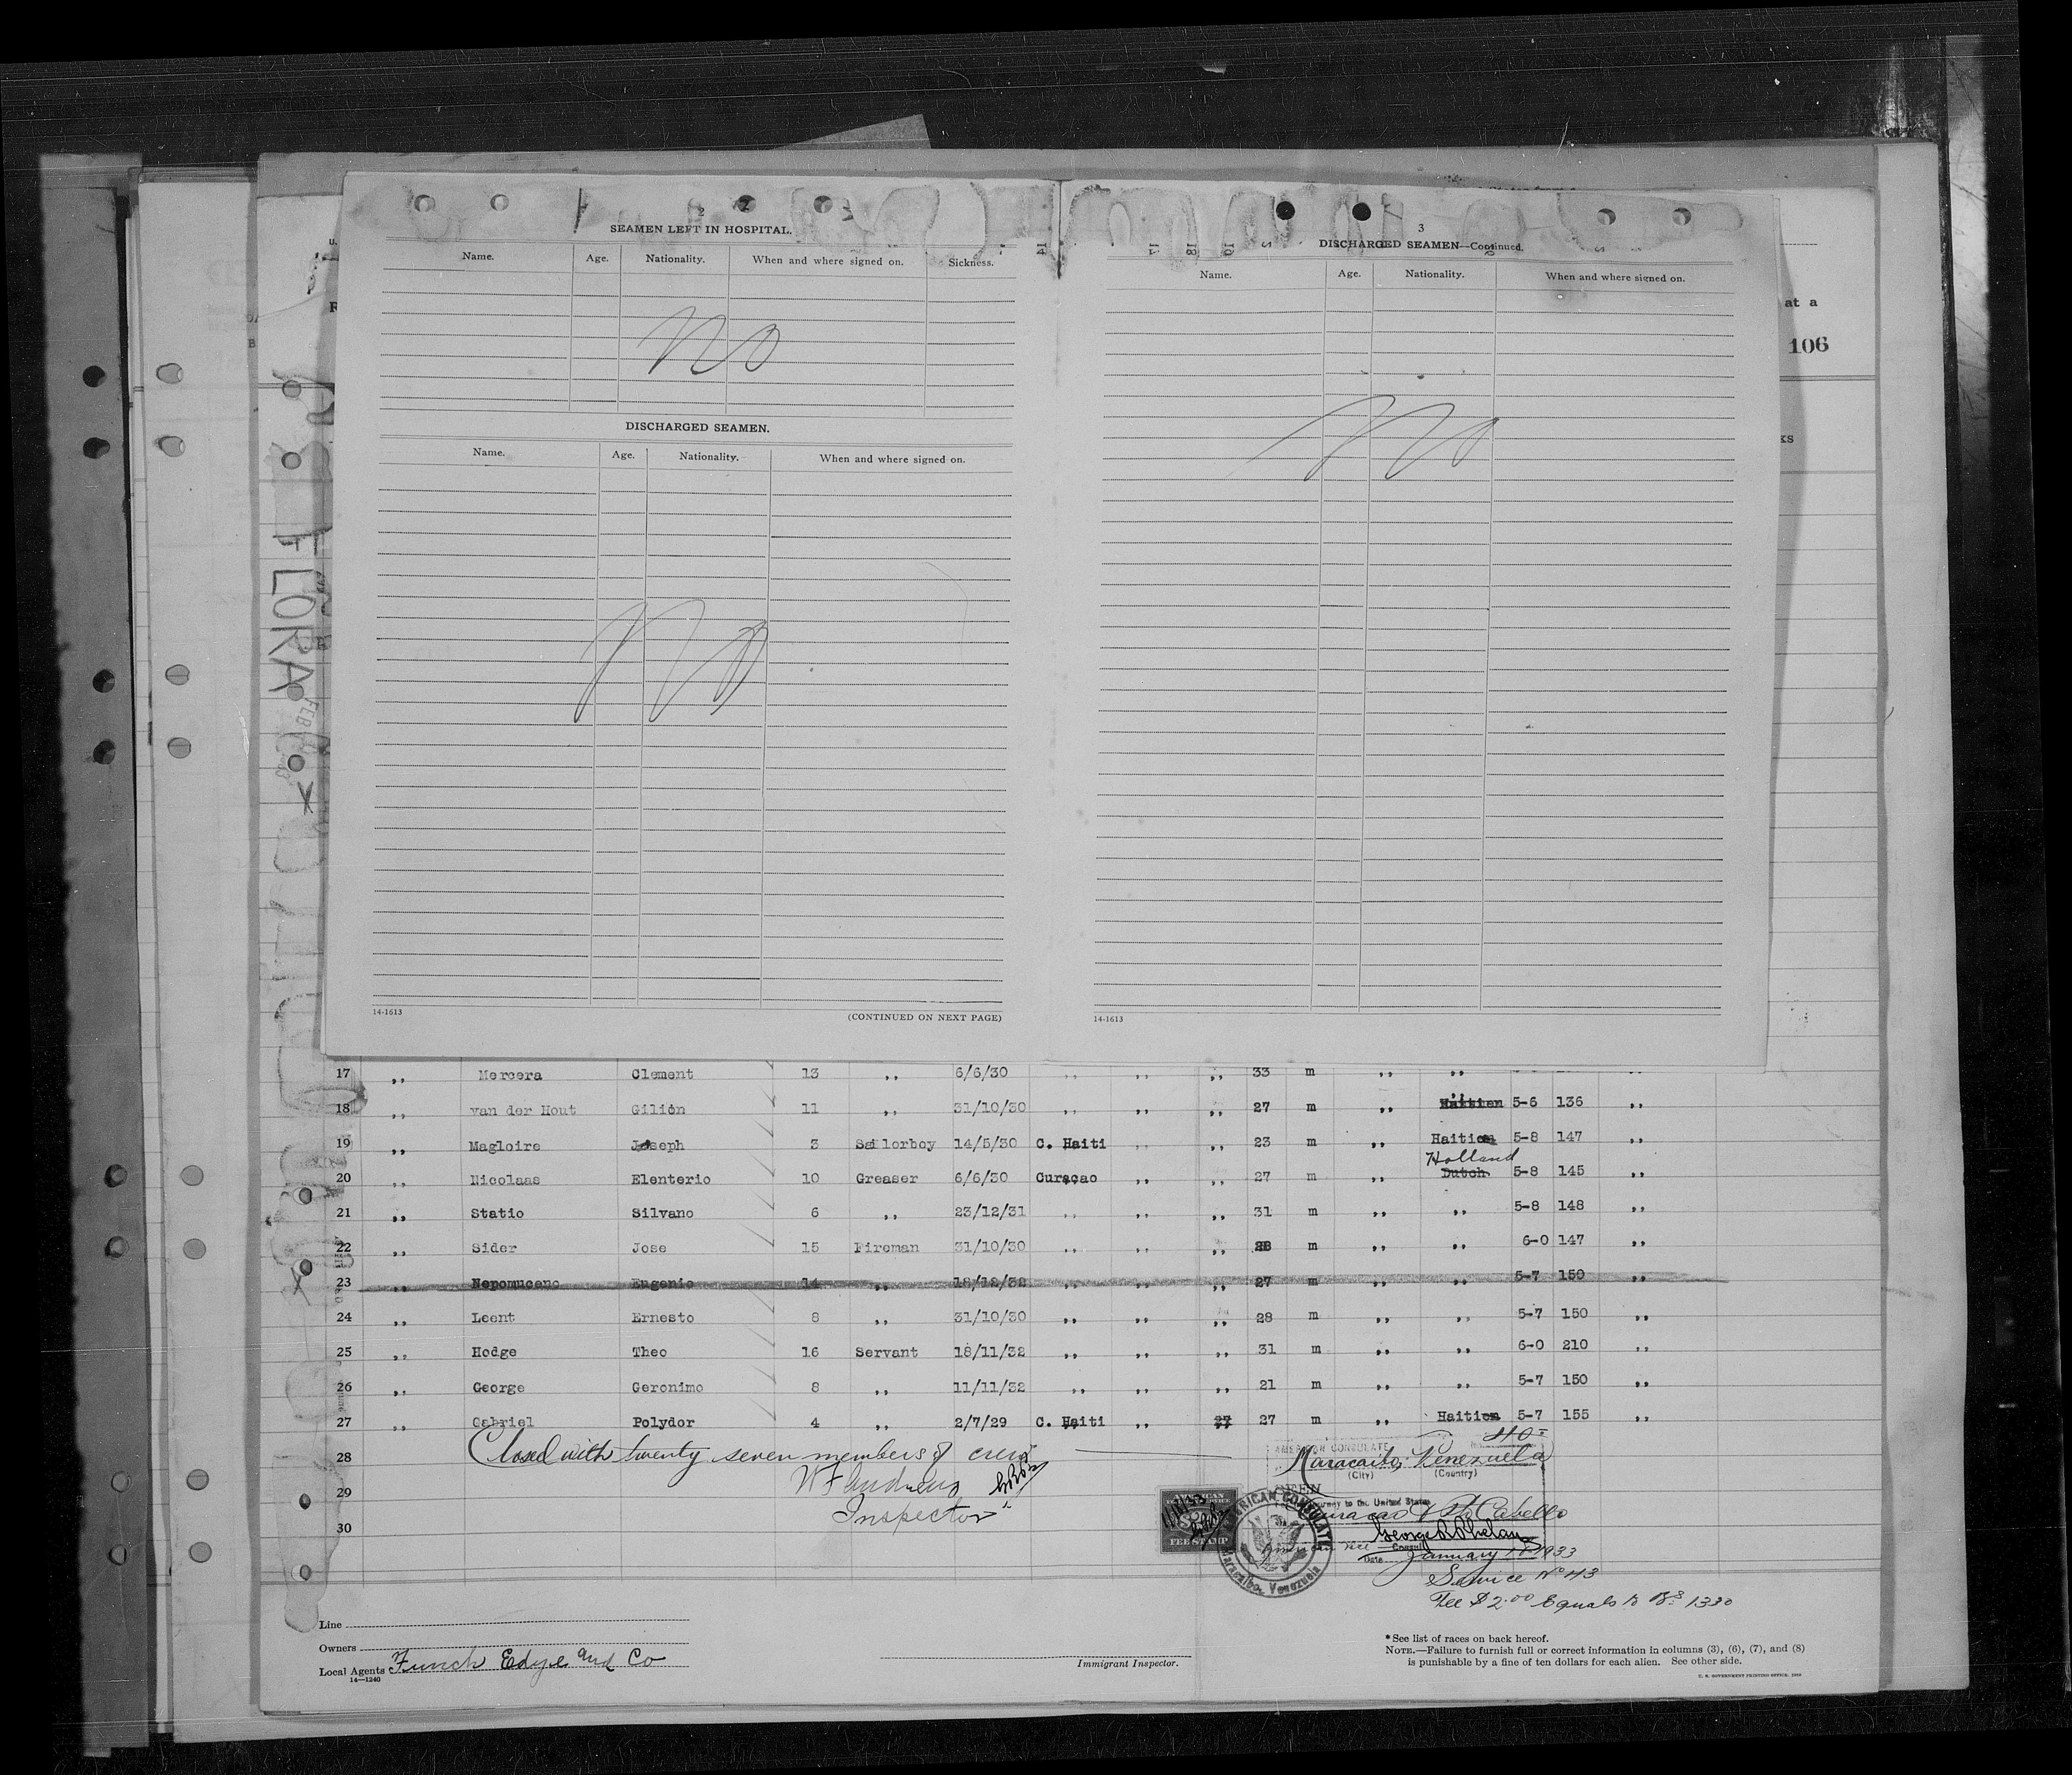 2
SEAMEN LEFT IN HOSPITAL.
Name. Age. Nationality. When and where signed on. Sickness.
No
DISCHARGED SEAMEN.
Name. Age. Nationality. When and where signed on.
No
14-1613 (CONTINUED ON NEXT PAGE)
3
DISCHARGED SEAMEN—Continued.
Name. Age. Nationality. When and where signed on.
No
14-1613
at a
106
FLORA
FEB
17 ,, Mercera Clement 13 ,, 6/6/30 ,, ,, ,, 33 m ,, ,,
18 ,, van der Hout Gilión 11 ,, 31/10/30 ,, ,, ,, 27 m ,, Haitien 5-6 136 ,,
19 ,, Magloire Joseph 3 Sailorboy 14/5/30 C. Haiti ,, ,, 23 m ,, Haitien 5-8 147 ,,
Holland
20 ,, Nicolaas Elenterio 10 Greaser 6/6/30 Curaçao ,, ,, 27 m ,, Dutch 5-8 145 ,,
21 ,, Statio Silvano 6 ,, 23/12/31 ,, ,, ,, 31 m ,, ,, 5-8 148 ,,
22 ,, Sider Jose 15 Fireman 31/10/30 ,, ,, ,, 28 m ,, ,, 6-0 147 ,,
23 ,, Nepomuceno Eugenio 14 ,, 18/12/32 ,, ,, ,, 27 m ,, ,, 5-7 150 ,,
24 ,, Leent Ernesto 8 ,, 31/10/30 ,, ,, ,, 28 m ,, ,, 5-7 150 ,,
25 ,, Hodge Theo 16 Servant 18/11/32 ,, ,, ,, 31 m ,, ,, 6-0 210 ,,
26 ,, George Geronimo 8 ,, 11/11/32 ,, ,, ,, 21 m ,, ,, 5-7 150 ,,
27 ,, Gabriel Polydor 4 ,, 2/7/29 C. Haiti ,, 27 27 m ,, Haitien 5-7 155 ,,
28 Closed with twenty seven members of crew
29
Inspector
30
AMERICAN CONSULATE
Maracaibo, Venezuela
(City) (Country)
journey to the United States
Curacao & Pto Cabello
George R Phelan
American Vice Consul
Date January 11 1933
Service No 43
Fee $2.00 Equals to Bs 1330
AMERICAN
FEE STAMP
AMERICAN CONSULATE
Maracaibo, Venezuela
Line
Owners
Local Agents Funch Edye and Co
14—1240
Immigrant Inspector.
*See list of races on back hereof.
NOTE.—Failure to furnish full or correct information in columns (3), (6), (7), and (8)
is punishable by a fine of ten dollars for each alien. See other side.
U. S. GOVERNMENT PRINTING OFFICE